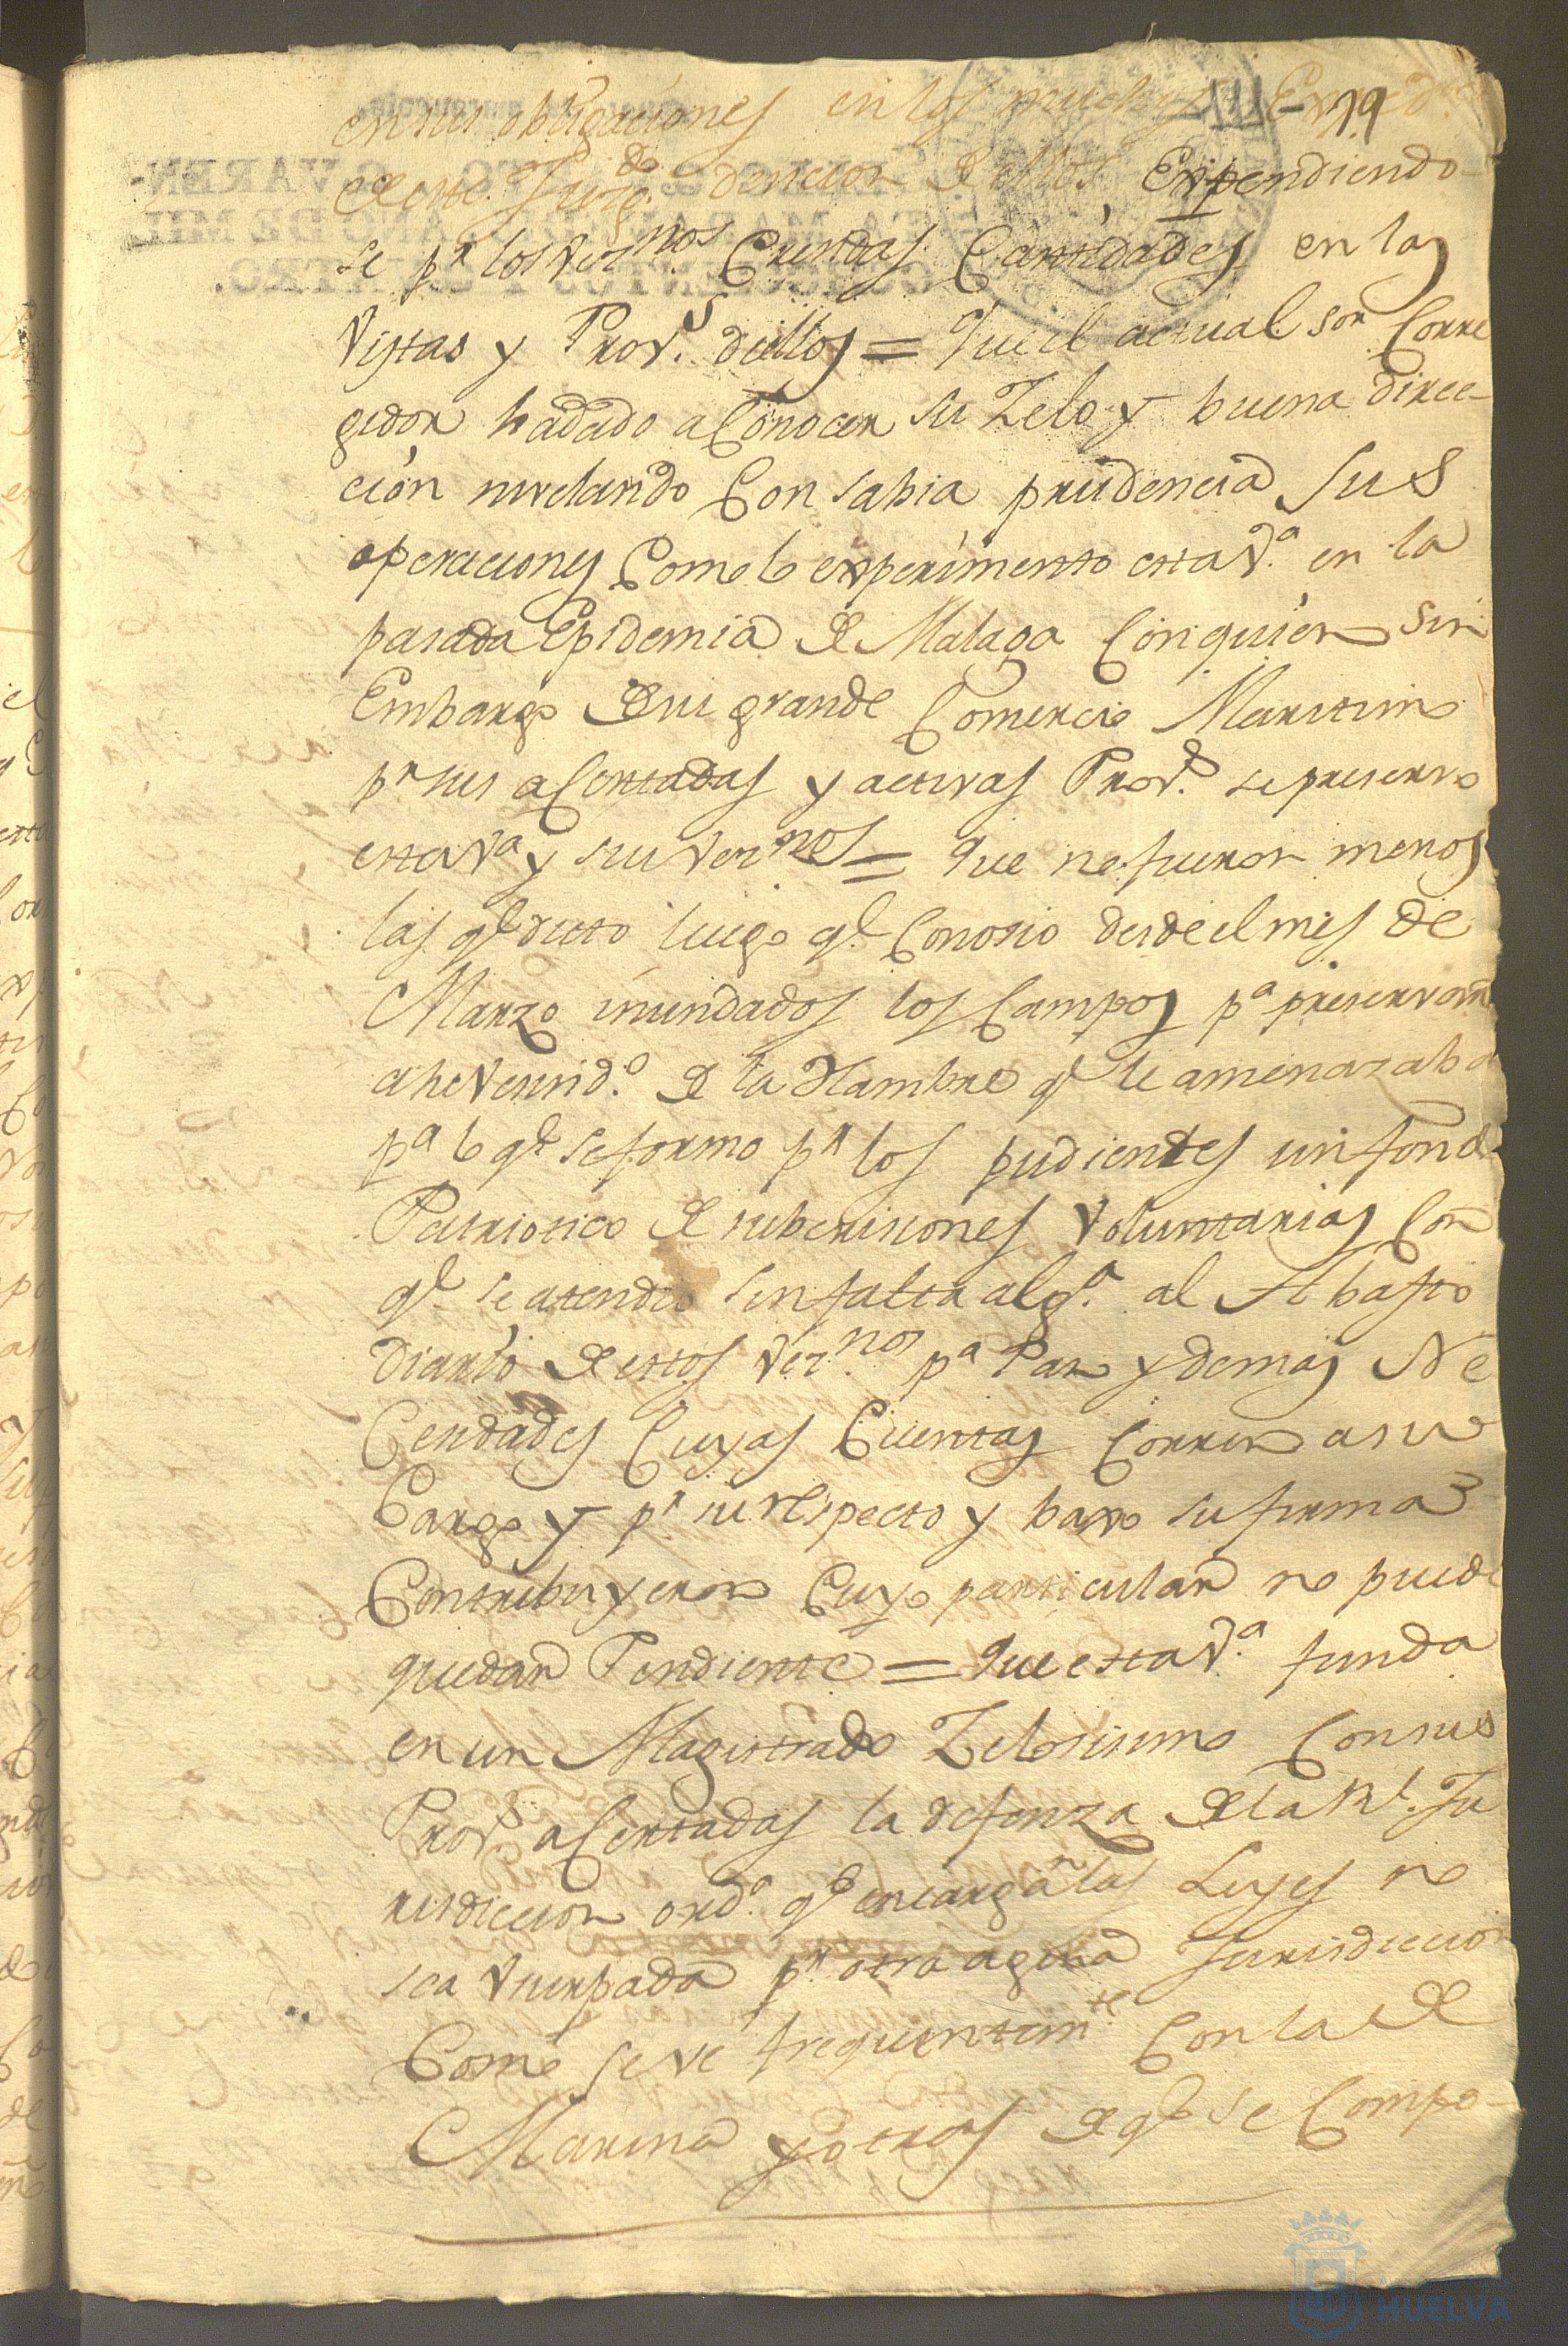 en sus obligaciones en los muchos Exped.s
19
de este Juzg.do dencion de ellos, Expendiendo
se p.r los vez.nos Crecidas Cantidades en las
Vistas y Prov.s de ellos = Que el actual Sor Corre
gidor ha dado a Conocer su Zelo y buena direc-
ción nivelando Con sabia prudencia Sus
operaciones Como lo experimento esta V.a en la
pasada Epidemia de Malaga Con quien sin
Embargo de su grande Comercio Maritimo
p.r sus acertadas y activas Prov.s se preservo
esta V.a y sus vez.nos = Que no fueron menos
las q.e dicto luego q.e Conosio desde el mes de
Marzo inundados los Campos p.a preservar
a he Vecind.o de la Hambre q.e le amenazaba
p.a lo q.e se formo p.r los pudientes un fondo
Patriotico de subscrisiones Voluntarias Con
q.e se atendio sin falta alg.a al Abasto
Diario de estos Vez.nos p.a Pan y demas Ne
Cesidades Cuyas Cuentas Corren a su
Cargo y p.r su respecto y baxo su firma
Contribuyeron Cuyo particular no puede
quedar Pendiente = Que esta V.a funda
en un Magistrado Zelosisimo Con sus
Prov.s acertadas la defenza de la Rl. Ju
risdiccion ord.a q.e encargan las Leyes no
sea Vsurpada p.r otra agena Jurisdiccion
Como se ve frequentem.te Con la de
Marina y otras de q.e se Compo-
HUELVA